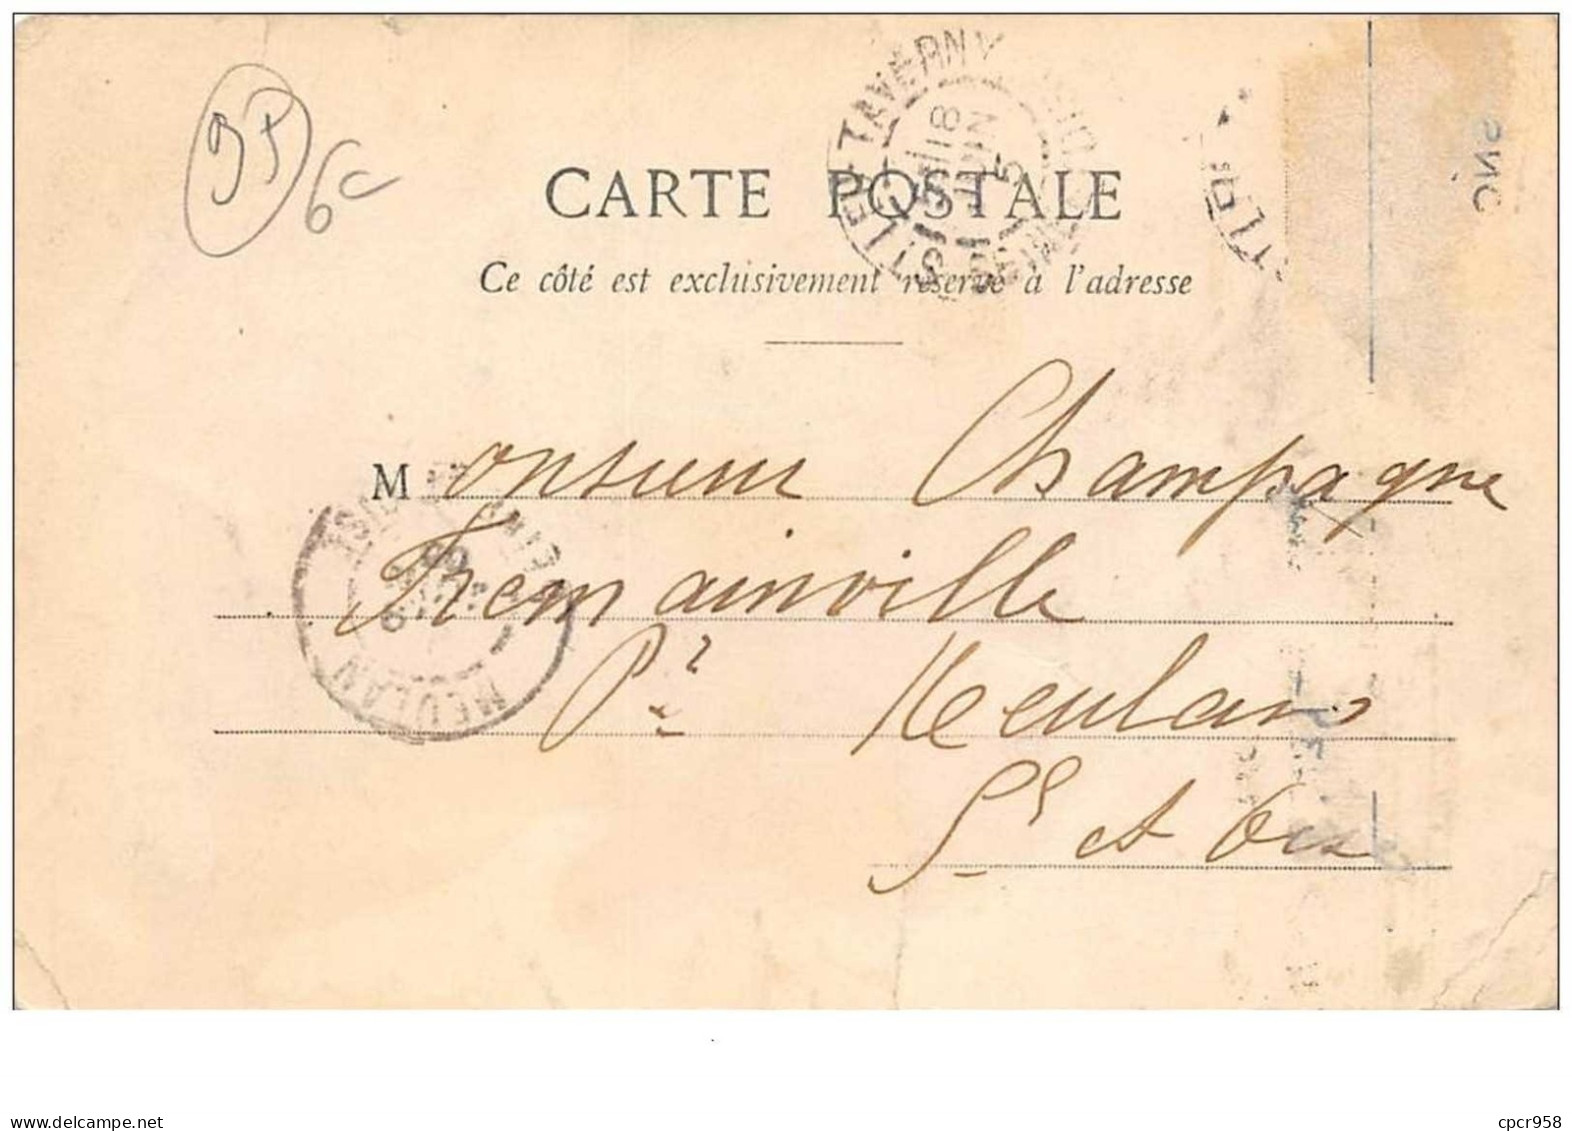 95
6c
ST LEU-TAVERNY
8
JUIN
CARTE POSTALE
Ce côté est exclusivement réservé à l'adresse
Monsieur Champagne
Fremainville
Pr Meulan
Se et Oise
MEULAN
delcampe.net
cpcr958